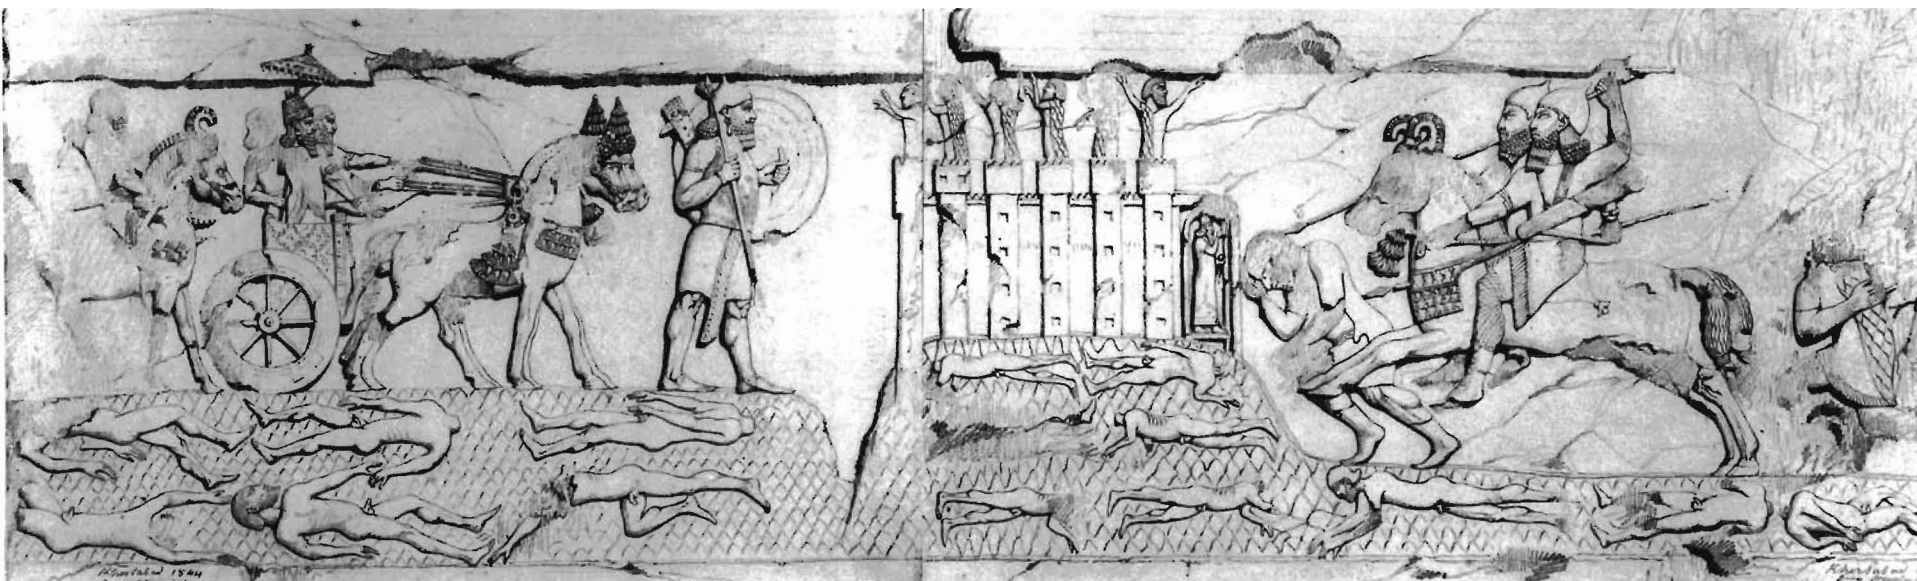 Khorsabad 1844
Khorsabad